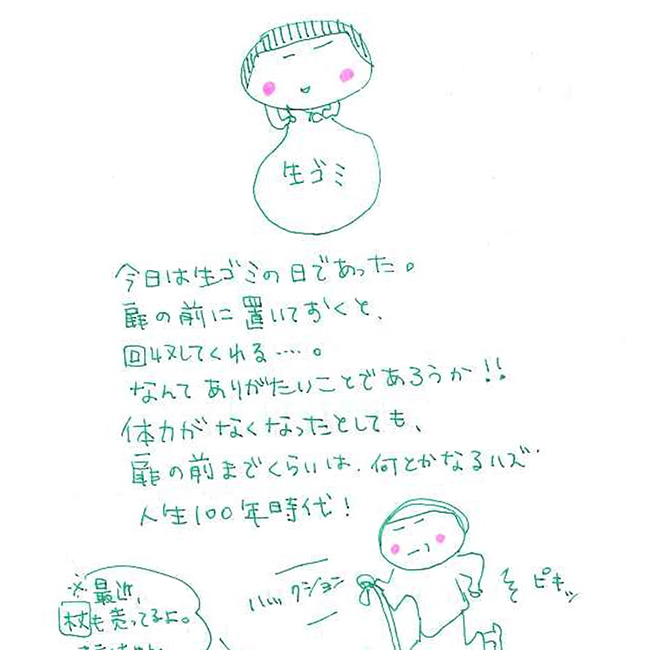 生ゴミ
今日は生ゴミの日であった。
扉の前に置いておくと、
回収してくれる・・・・。
なんてありがたいことであろうか!!
体力がなくなったとしても、
扉の前までくらいは、何とかなるハズ
人生100年時代!
ハッックション
ピキッ
※最近、
杖も売ってるよ。